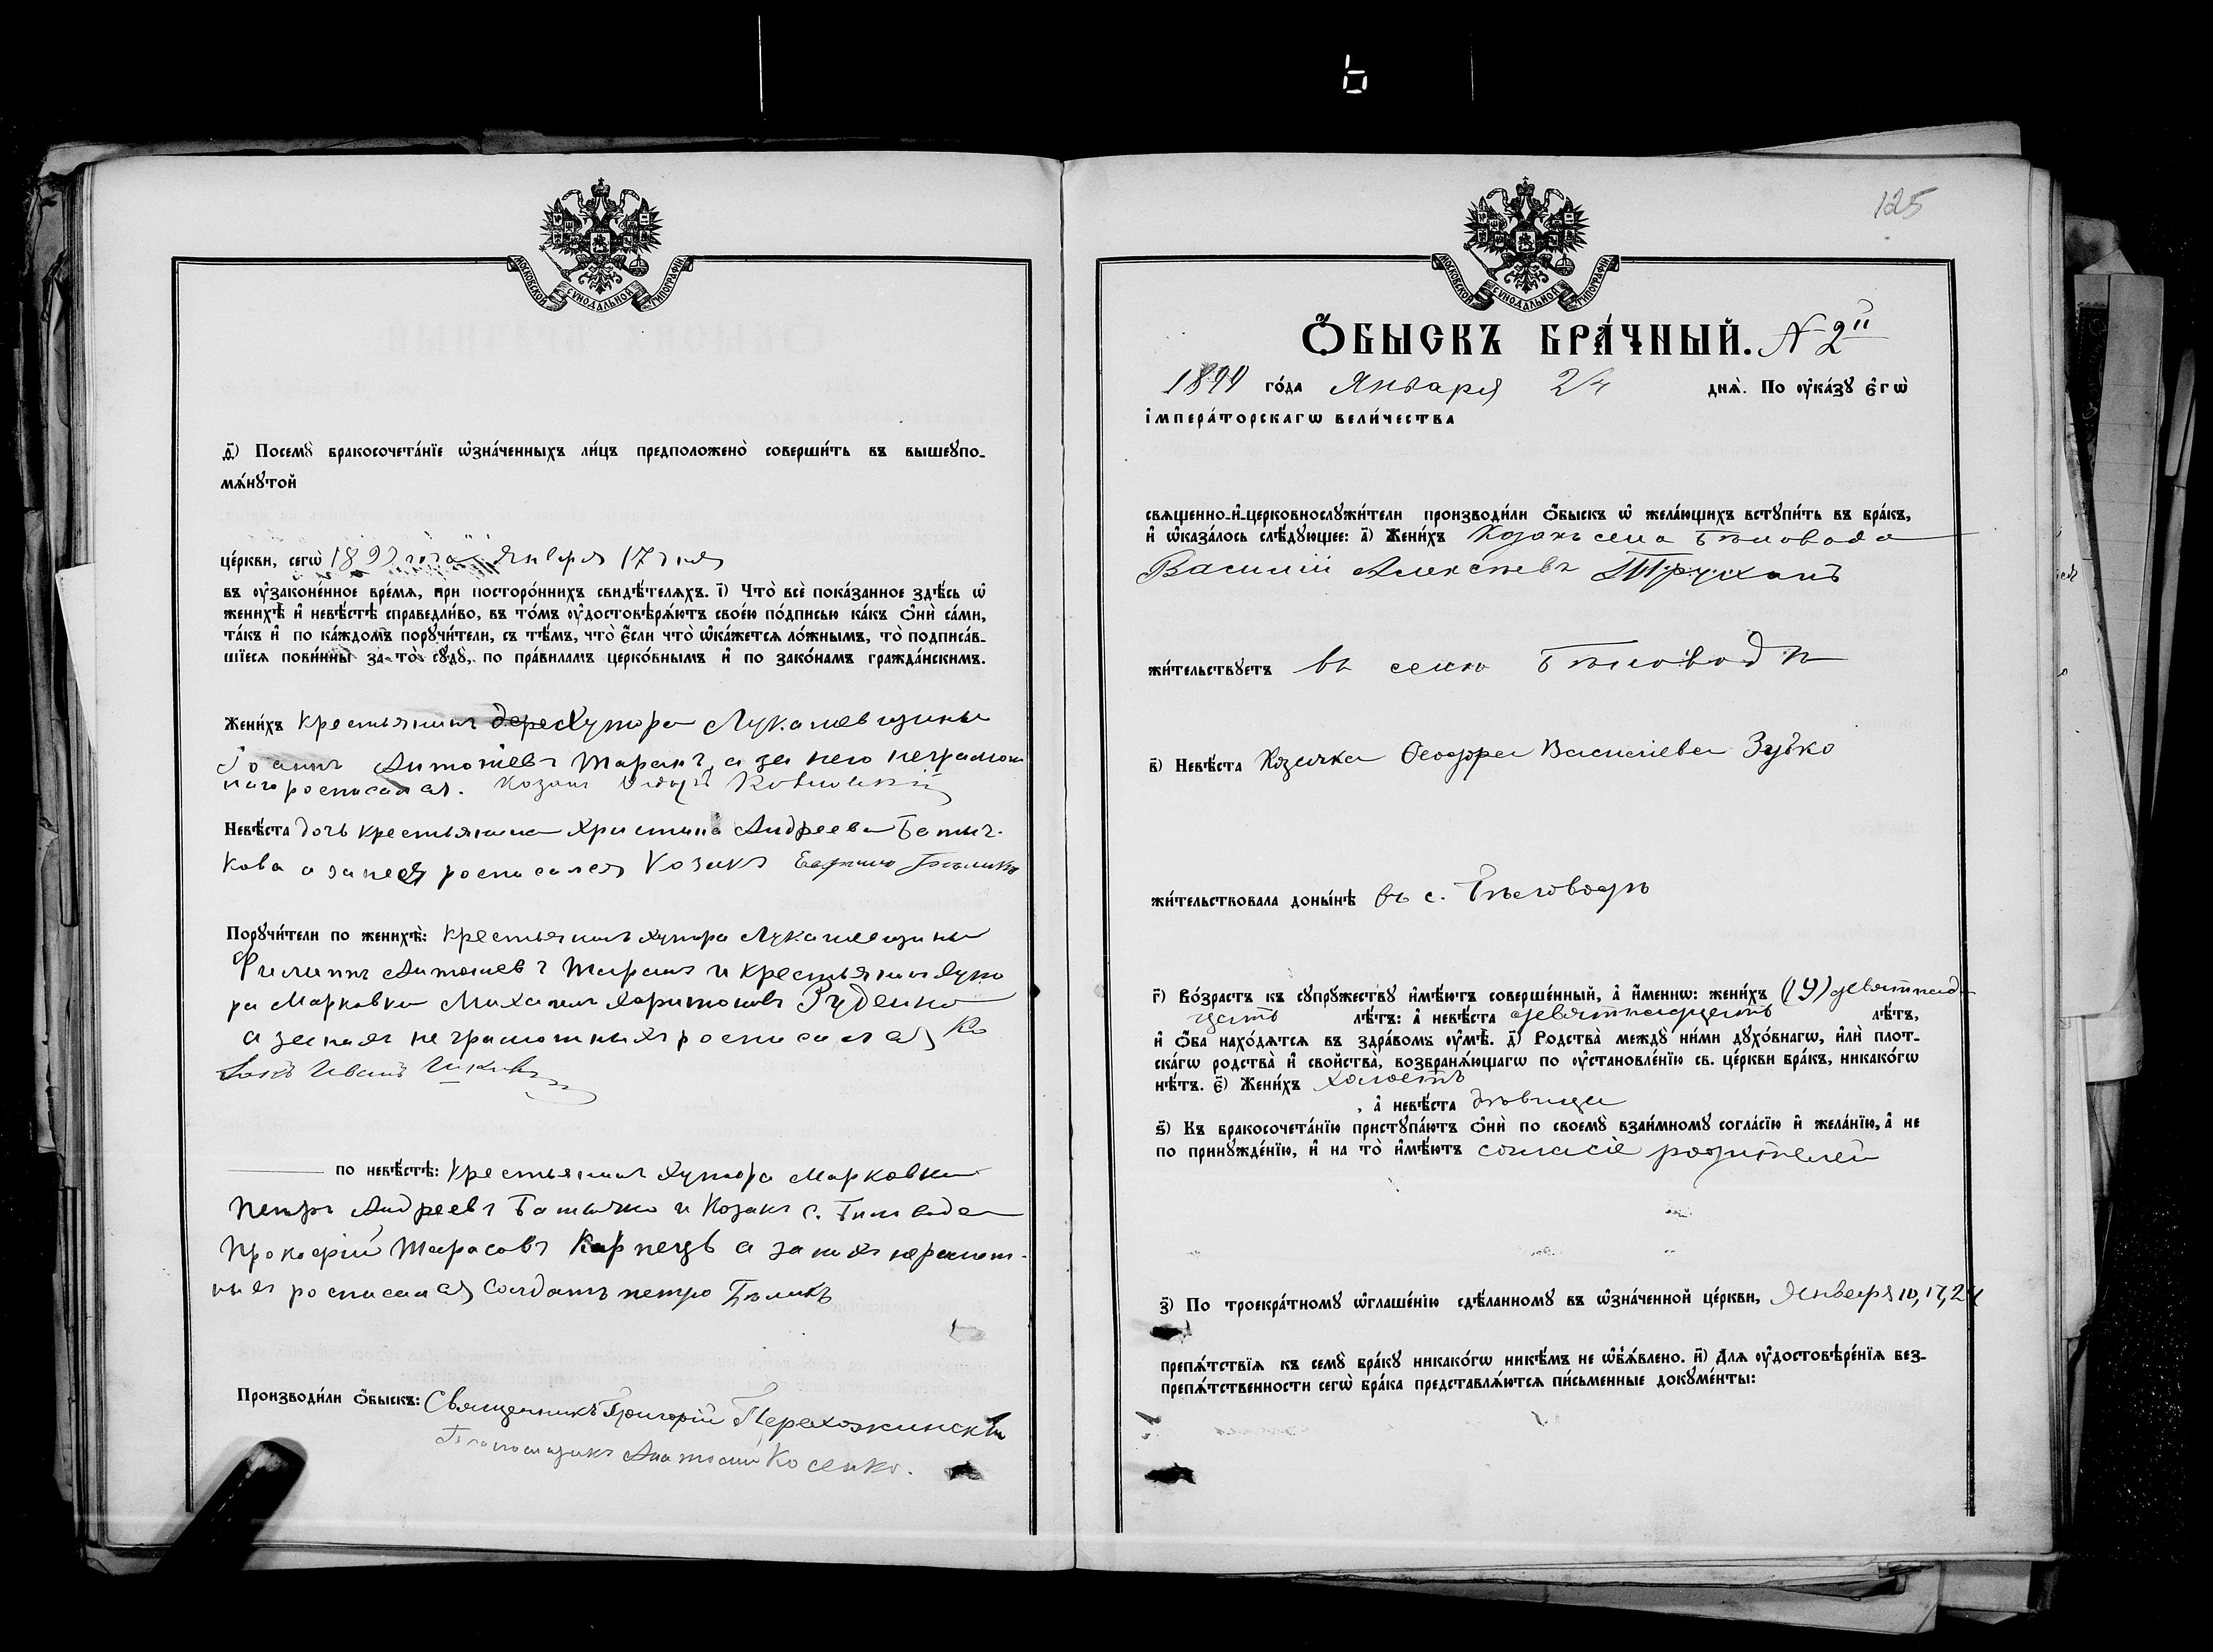 МОСКОВСКОЙ СѴНОДАЛЬНОЙ ТИПОГРАФІИ
д҃) Посемꙋ̀ бракосочета́нїе ѡ҆зна́ченныхъ ли́цъ предположено̀ соверши́ть въ вышеꙋпо-
мѧ́нꙋтой
це́ркви, сегѡ̀ 1899 года Января 17 дня
въ ᲂу҆законе́нное вре́мѧ, при посторо́ннихъ свидѣ́телѧхъ. і҃) Что̀ всѐ пока́занное здѣ́сь ѡ҆
женихѣ̀ и҆ невѣ́стѣ справедли́во, въ то́мъ ᲂу҆достовѣрѧ́ютъ свое́ю по́дписью ка́къ ѻ҆нѝ са́ми,
та́къ и҆ по ка́ждомъ порꙋчи́тели, съ тѣ́мъ, что̀ є҆́сли что̀ ѡ҆ка́жетсѧ ло́жнымъ, то̀ подписа́в-
шїесѧ пови́нны за то̀ сꙋдꙋ̀, по пра́виламъ церко́внымъ и҆ по зако́намъ гражда́нскимъ.
Жени́хъ крестьянинъ дере Хутора Лукашевщины
Іоаннъ Антоніевъ Таранъ, а за него неграмот
наго росписался. Козакъ
Невѣ́ста дочь крестьянина Христина Андреева Батыч-
кова а за нея росписался Козакъ
Порꙋчи́тели по женихѣ̀: крестьянинъ хутора Лукашевщины
Филиппъ Антоніевъ Таранъ и крестьянинъ хуто
ра Марковки Михаилъ Харитоновъ Руденко
а за нихъ неграмотныхъ росписался Ко
закъ Иванъ
по невѣ́стѣ: крестьянинъ хутора Марковки
Петръ Андреевъ Батычко и Козакъ с. Бѣловода
Прокофій Тарасовъ Карпецъ а за нихъ неграмот-
ныхъ росписался солдатъ петро Бѣликъ
Производи́ли ѻ҆́быскъ: Священникъ Григорій
Псаломщикъ Анатолій Косенко.
125
МОСКОВСКОЙ СѴНОДАЛЬНОЙ ТИПОГРАФІИ
Ѻ҆́БЫСКЪ БРА́ЧНЫЙ. N 2й
1899 го́да Января 24 днѧ̀. По ᲂу҆ка́зꙋ є҆гѡ̀
і҆мпера́торскагѡ вели́чества
свѧщенно-и҆-церковнослꙋжи́тели производи́ли ѻ҆́быскъ ѡ҆ жела́ющихъ встꙋпи́ть въ бра́къ,
и҆ ѡ҆каза́лось слѣ́дꙋющее: а҃) Жени́хъ Козакъ села Бѣловода
Василій Алексѣевъ Труханъ
жи́тельствꙋетъ въ селѣ Бѣловодѣ
в҃) Невѣ́ста Козачка Ѳеодора Васильева Зубко
жи́тельствовала доны́нѣ въ с. Бѣловодѣ
г҃) Во́зрастъ къ сꙋпрꙋ́жествꙋ и҆мѣ́ютъ соверше́нный, а҆ и҆́меннѡ: жени́хъ (19) девятнад
цать лѣ́тъ: а҆ невѣ́ста девятнадцать лѣ́тъ,
и҆ ѻ҆́ба нахо́дѧтсѧ въ здра́вомъ ᲂу҆мѣ̀. д҃) Родства̀ междꙋ̀ ни́ми дꙋхо́внагѡ, и҆лѝ плот-
ска́гѡ родства̀ и҆ сво́йства̀, возбранѧ́ющагѡ по ᲂу҆становле́нїю св. це́ркви бра́къ, никако́гѡ
нѣ́тъ. є҃) Жени́хъ холостъ
, а҆ невѣ́ста дѣвица
ѕ҃) Къ бракосочета́нїю пристꙋпа́ютъ ѻ҆нѝ по своемꙋ̀ взаи́мномꙋ согла́сїю и҆ жела́нїю, а҆ не
по принꙋжде́нїю, и҆ на то̀ и҆мѣ́ютъ согласіе родителей
з҃) По троекра́тномꙋ ѡ҆глаше́нїю сдѣ́ланномꙋ въ ѡ҆зна́ченной це́ркви, Января 10, 17, 24
препѧ́тствїѧ къ семꙋ̀ бра́кꙋ никако́гѡ никѣ́мъ не ѡ҆б̾ѧ́влено. и҃) Длѧ ᲂу҆достовѣре́нїѧ без-
препѧ́тственности сегѡ̀ бра́ка представлѧ́ютсѧ пи́сьменные докꙋме́нты: